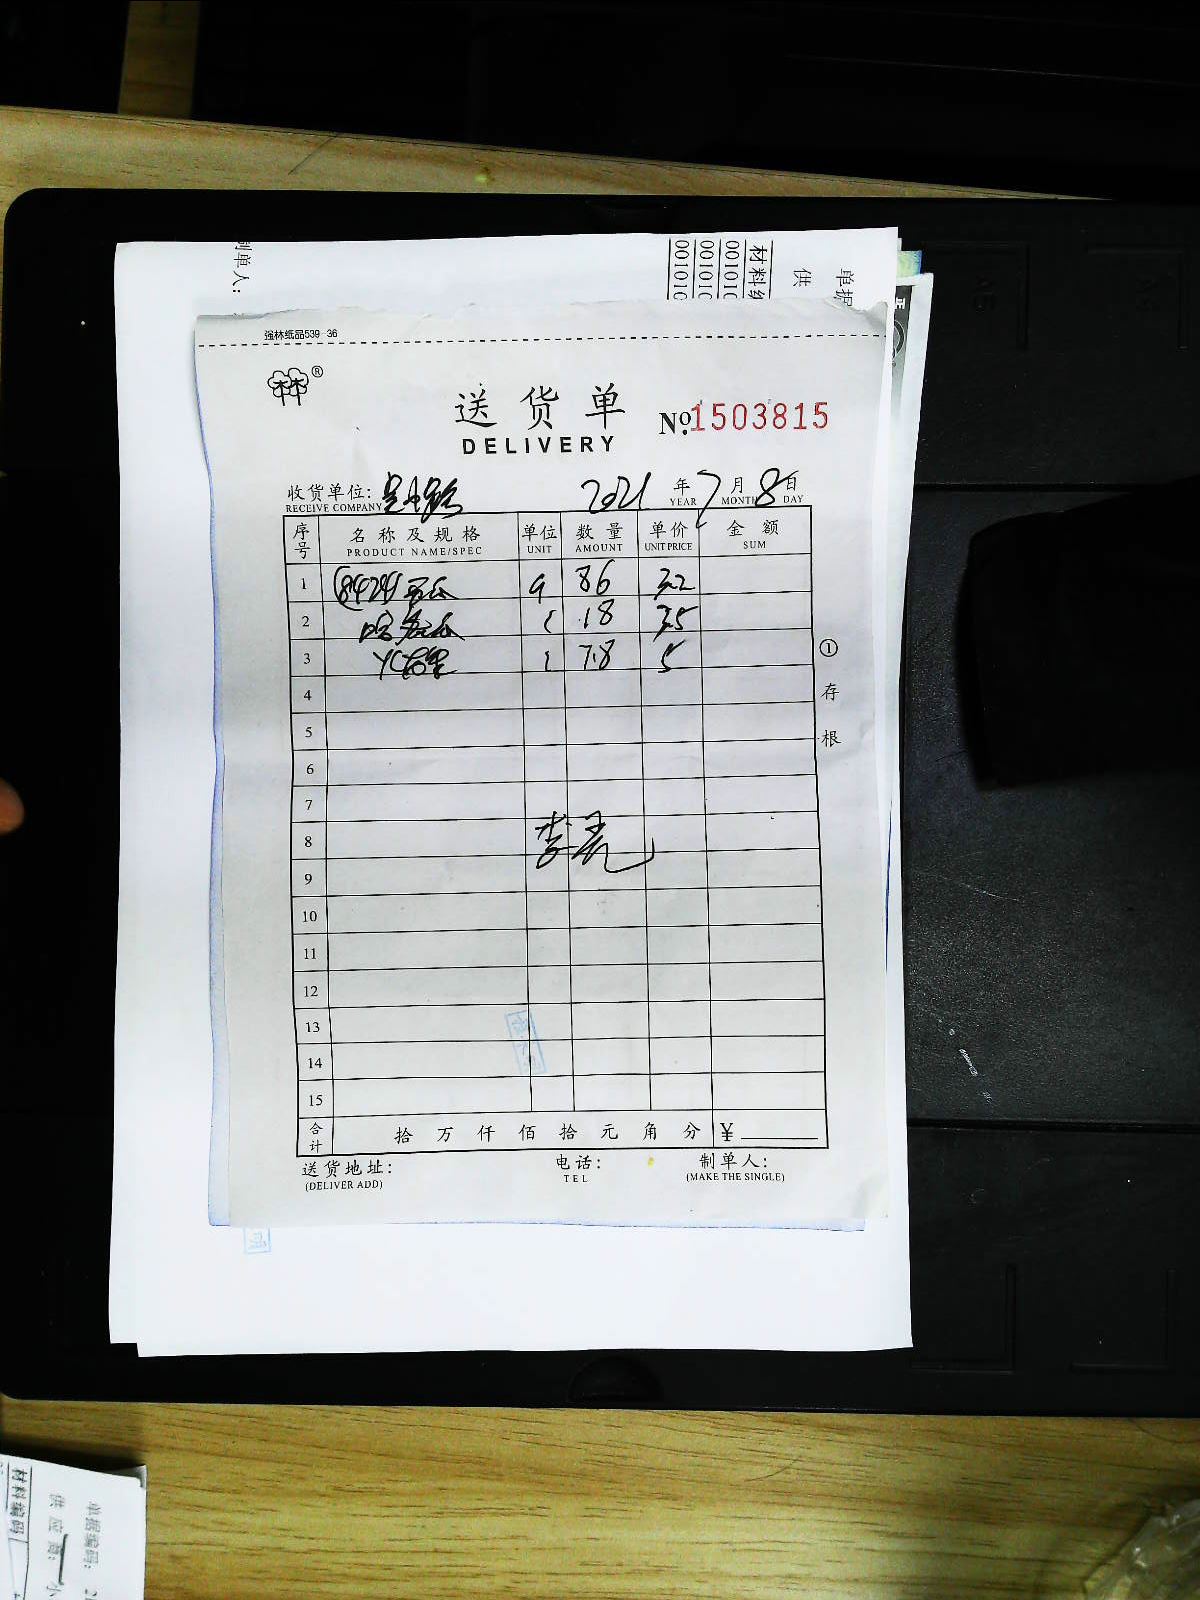 制单人:
材料编
001010
001010
001010
供
单据
强林纸品539-36
®
送货单
DELIVERY
No.1503815
收货单位: 2021 年 7 月 8 日
RECEIVE COMPANY YEAR MONTH DAY
序号 名称及规格 单位 数量 单价 金额
PRODUCT NAME/SPEC UNIT AMOUNT UNIT PRICE SUM
1 (8424)西瓜 86 3.2
2 哈密瓜 18 3.5
3 7.8 5
4
5
6
7
8 李亮
9
10
11
12
13
14
15
合计 拾 万 仟 佰 拾 元 角 分 ¥
送货地址: 电话: 制单人:
(DELIVER ADD) TEL (MAKE THE SINGLE)
①存根
材料编码
供应商: 小
单据编码: 21